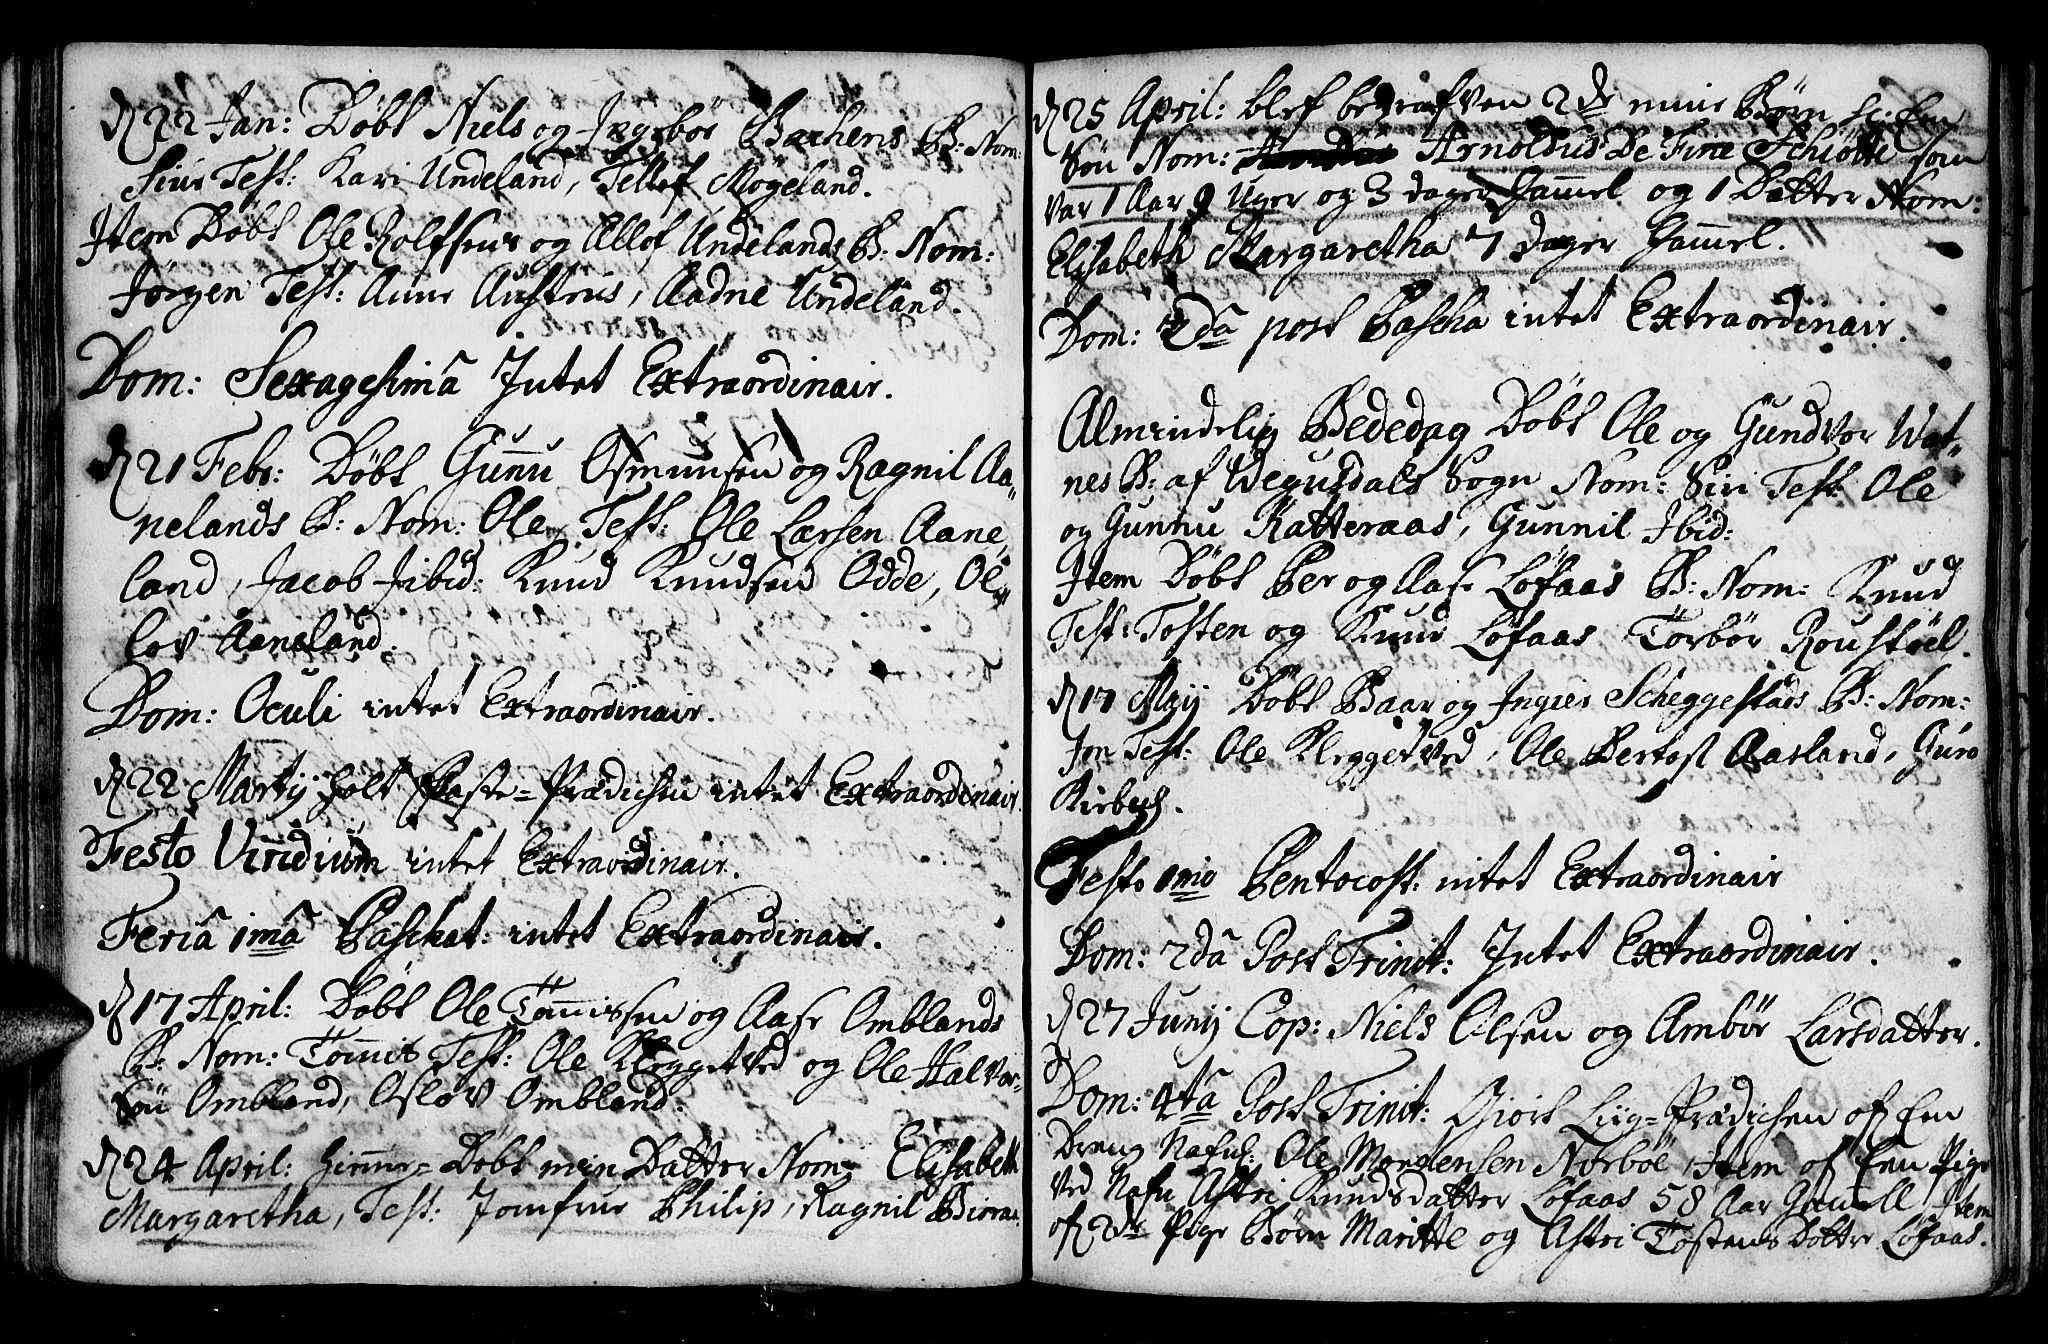 d 22 Jan: Døbt Niels og Ingebør Bachens B: Nom:
Siur Test: Kari Undeland, Tellef Møgeland.
Item Døbt Ole Rolfsens og Allof Undelands B: Nom:
Jørgen Test: Anne Austens, Aadne Undeland.
Dom: Sexagesimâ Intet Extraordinair.
d 21 Febr: Døbt Gunnu Osmunsen og Ragnil Aa„
nelands B: Nom: Ole, Test: Ole Larsen Aane„
land, Jacob Jibid: Knud Knudsen Odde, Ol„
lov Aaneland.
Dom: Oculi intet Extraordinair.
d 22 Martij holt Faste=Prædichen intet Extraordinair.
Festo Viridium intet Extraordinair.
Feriâ 1mâ Paschat: intet Extraordinair.
d 17 April: Døbt Ole Tønnissen og Aase Omblands
B: Nom: Tønnis Test: Ole Kleggetved og Ole Halvor„
søn Ombland, Osløv Ombland.
d 24 April: Hiemme=Døbt min Datter Nom: Elisabeth
Margaretha, Test: Jomfrue Philip, Ragnil
d 25 April: blef begrafven 2de mine Børn sc: Een
Søn Nom: Arnoldus De Fine Schiøtte som
var 1 Aar 9 Uger og 3 dager Gammel og 1 Datter Nom:
Elisabeth Margaretha 7 dager Gammel.
Dom: 2dâ post Pascha intet Extraordinair.
Almindelig Bededag Døbt Ole og Gundvor Wat„
nes B: af Wegusdals Sogn Nom: Siri Test: Ole
og Gunnu Katteraas, Gunnil Ibid:
Item Døbt Per og Aase Løfaas B: Nom: Knud
Test: Tosten og Knud Løfaas Torbør Roustøel.
d 17 Maij Døbt Baar og Ingier Scheggestads B: Nom:
Jon Test: Ole Kleggetved, Ole Bertost Aasland, Guro
Kirbus.
Festo 1mo Pentocost: intet Extraordinair
Dom: 2dâ Post Trinit: Intet Extraordinair.
d 27 Junij Cop: Niels Olsen og Ambør Larsdatter.
Dom: 4tâ Post Trinit: Giort Liig=Prædichen of Een
Dreng Nafnl: Ole Mortensen Norbøe, Item of Een Pige
ved Nafn Astri Knudsdatter Løfaas 58 Aar Gamell Item
of 2de Pige Børn Maritte og Astri Tostens Døtter Løfaas.